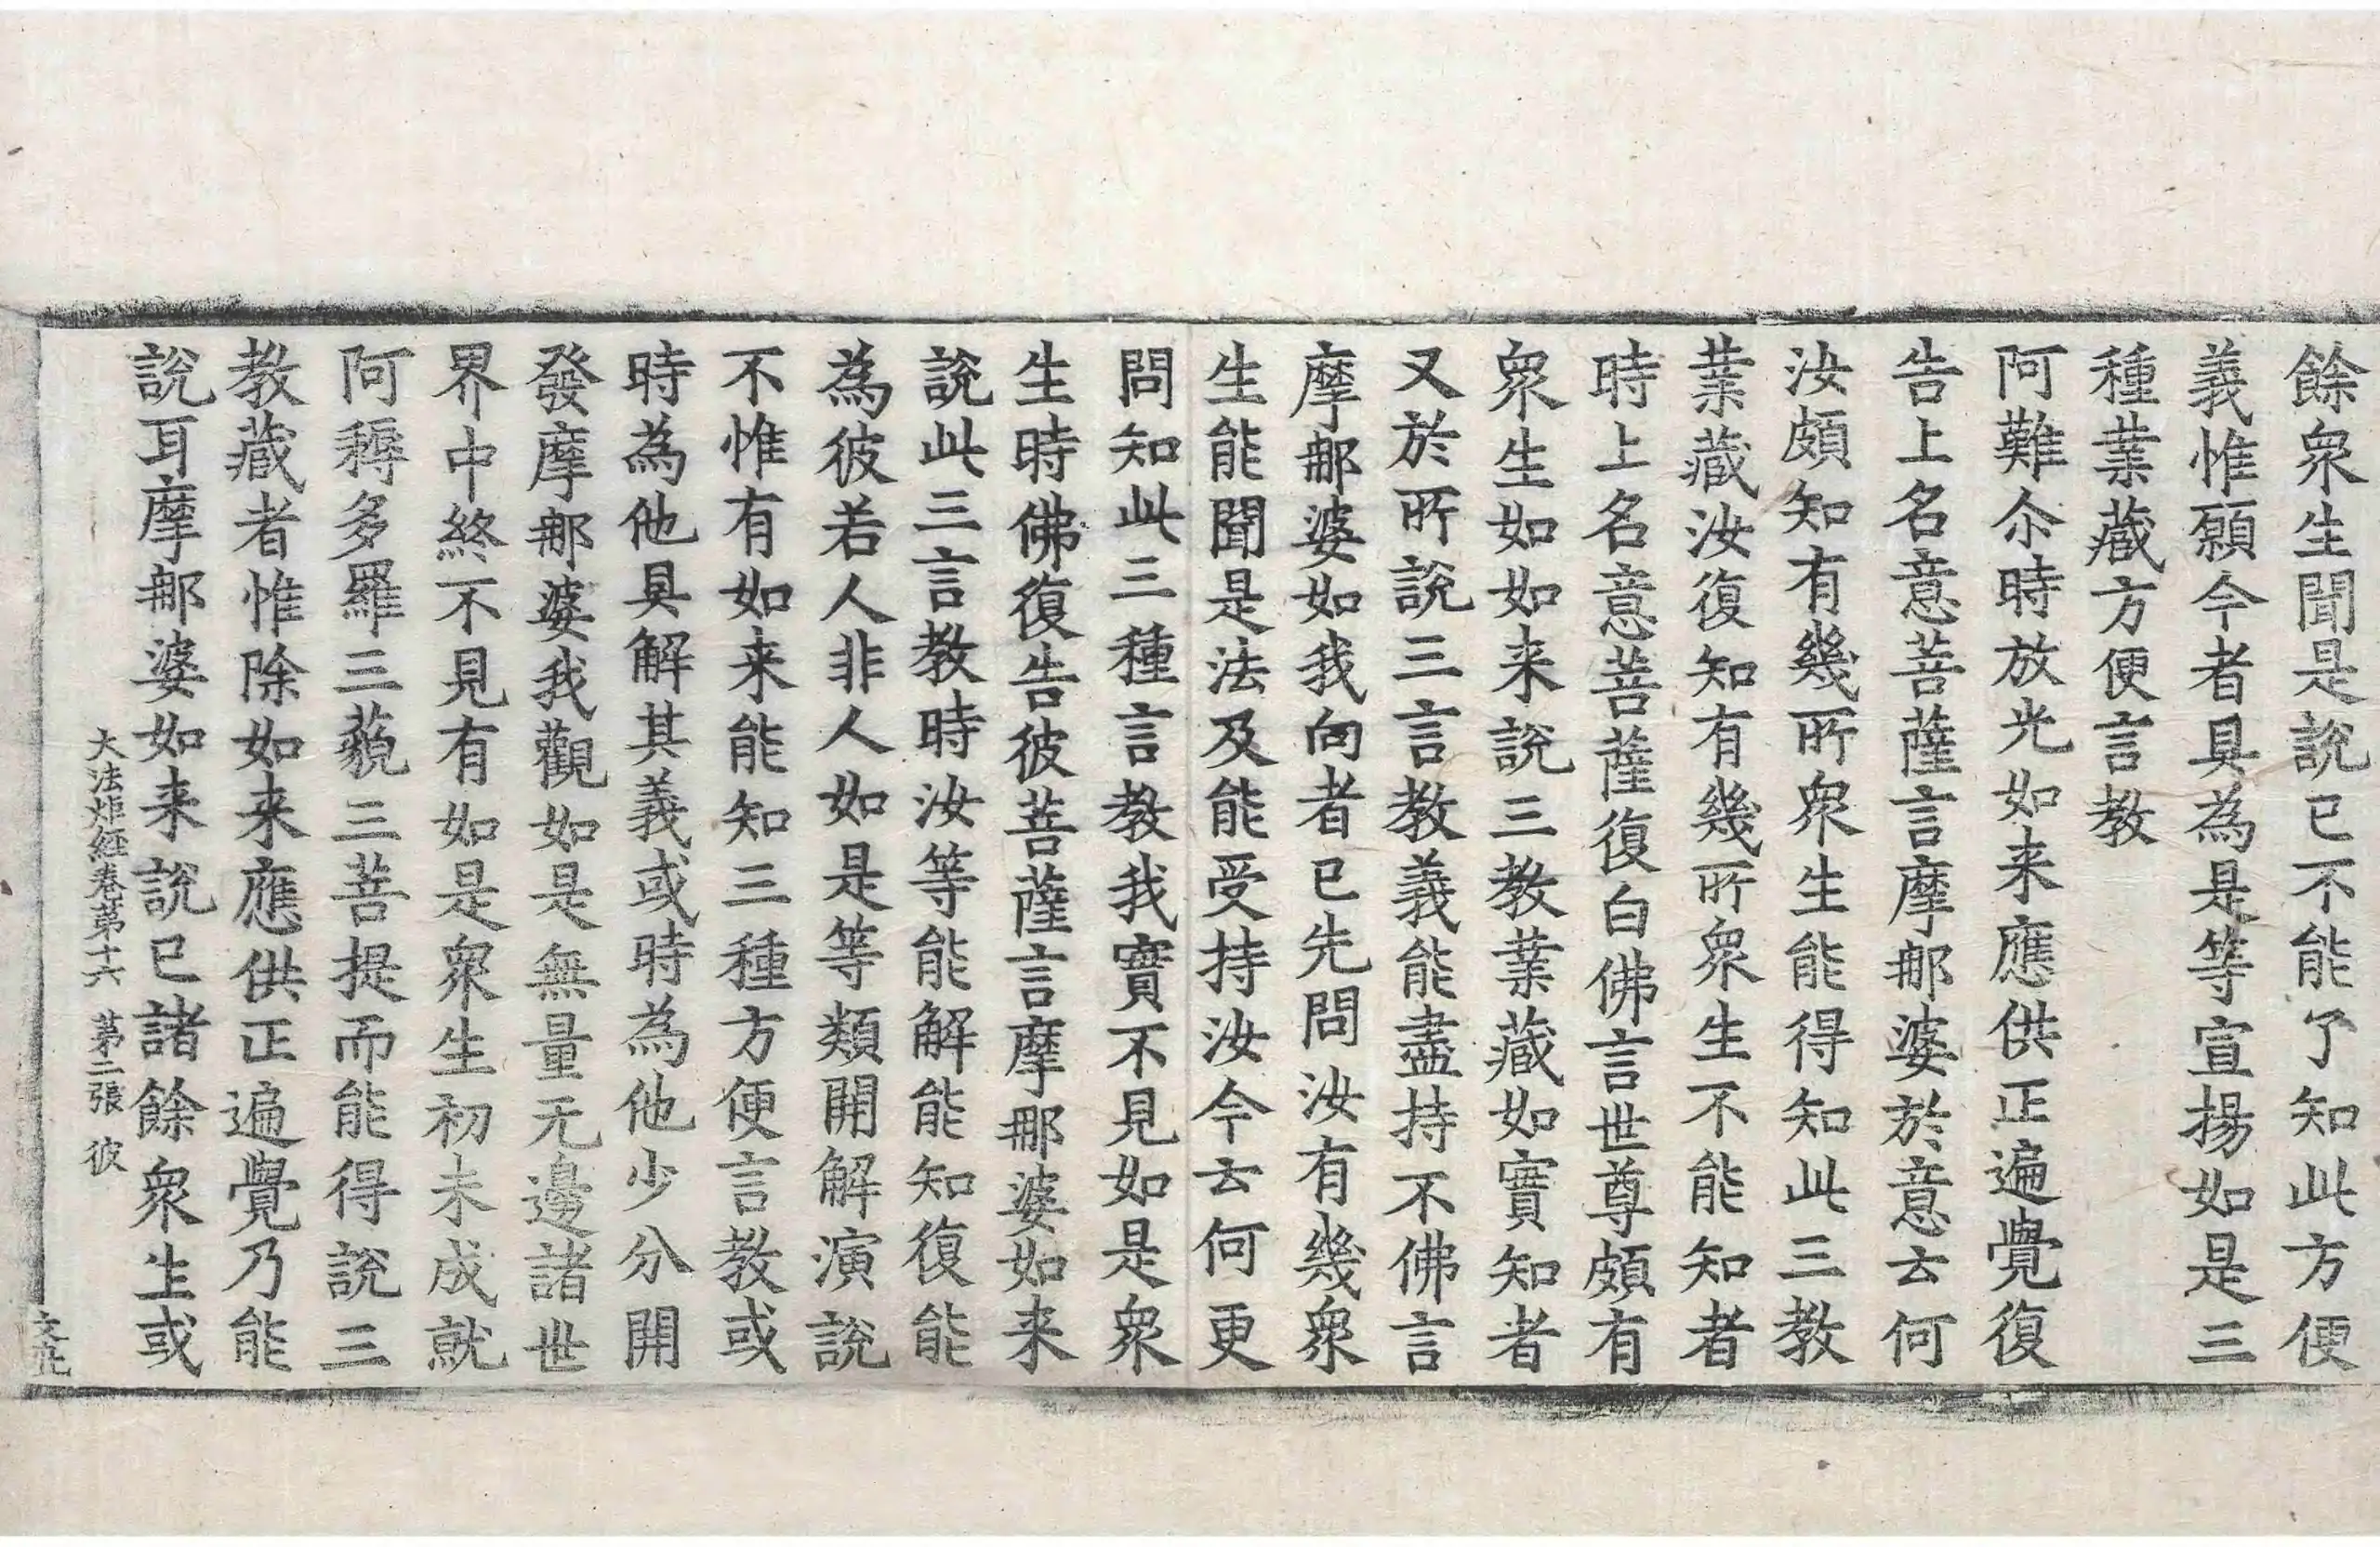 餘衆生聞是説已不能了知此方便
義惟願今者具為是等宣揚如是三
種業藏方便言教
阿難尒時放光如来應供正遍覺復
告上名意菩薩言摩那婆於意云何
汝頗知有幾所衆生能得知此三教
業藏汝復知有幾所衆生不能知者
時上名意菩薩復白佛言世尊頗有
衆生如如来說三教業藏如實知者
又於所說三言教義能盡持不佛言
摩那婆如我向者已先問汝有幾衆
生能聞是法及能受持汝今云何更
問知此三種言教我實不見如是衆
生時佛復告彼菩薩言摩那婆如来
說此三言教時汝等能解能知復能
為彼若人非人如是等類開解演說
不惟有如来能知三種方便言教或
時為他具解其義或時為他少分開
發摩那婆我觀如是無量无邊諸世
界中終不見有如是衆生初未成就
阿耨多羅三藐三菩提而能得說三
教藏者惟除如来應供正遍覺乃能
說耳摩那婆如来說已諸餘衆生或
大法炬經卷第十六 第二張 彼